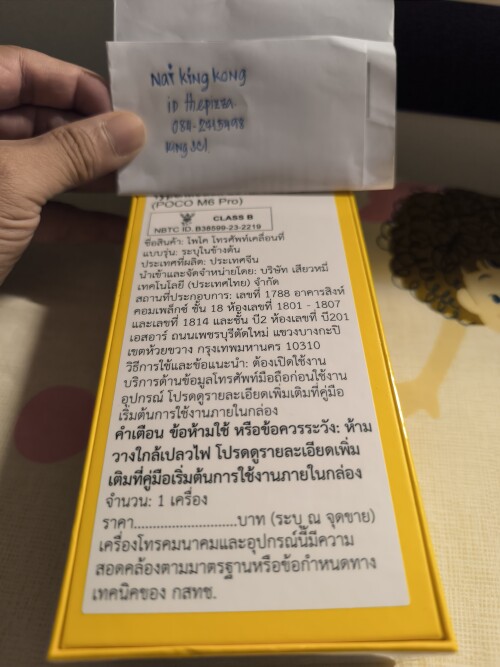 Nai king kong
(POCO M6 Pro)
CLASS B
NBTC ID. B38599-23-2219
ชื่อสินค้า: โพโค โทรศัพท์เคลื่อนที่
แบบรุ่น: ระบุในข้างต้น
ประเทศที่ผลิต: ประเทศจีน
นำเข้าและจัดจำหน่ายโดย: บริษัท เสียวหมี่
เทคโนโลยี (ประเทศไทย) จำกัด
สถานที่ประกอบการ: เลขที่ 1788 อาคารสิงห์
คอมเพล็กซ์ ชั้น 18 ห้องเลขที่ 1801 - 1807
และเลขที่ 1814 และชั้น บี2 ห้องเลขที่ บี201
เอสอาร์ ถนนเพชรบุรีตัดใหม่ แขวงบางกะปิ
เขตห้วยขวาง กรุงเทพมหานคร 10310
วิธีการใช้และข้อแนะนำ: ต้องเปิดใช้งาน
บริการด้านข้อมูลโทรศัพท์มือถือก่อนใช้งาน
อุปกรณ์ โปรดดูรายละเอียดเพิ่มเติมที่คู่มือ
เริ่มต้นการใช้งานภายในกล่อง
คำเตือน ข้อห้ามใช้ หรือข้อควรระวัง: ห้าม
วางใกล้เปลวไฟ โปรดดูรายละเอียดเพิ่ม
เติมที่คู่มือเริ่มต้นการใช้งานภายในกล่อง
จำนวน: 1 เครื่อง
ราคา...........................บาท (ระบุ ณ จุดขาย)
เครื่องโทรคมนาคมและอุปกรณ์นี้มีความ
สอดคล้องตามมาตรฐานหรือข้อกำหนดทาง
เทคนิคของ กสทช.